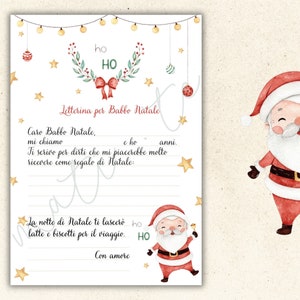 ho
HO
Letterina per Babbo Natale
Caro Babbo Natale,
mi chiamo e ho anni.
Ti scrivo per dirti che mi piacerebbe molto
ricevere come regalo di Natale:
La notte di Natale ti lascerò
latte e biscotti per il viaggio.
Con amore
ho
HO